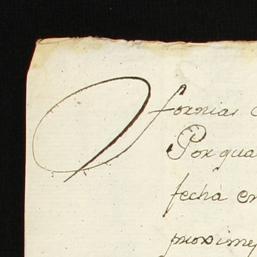 fornias
Por qua
fecha en
proxime